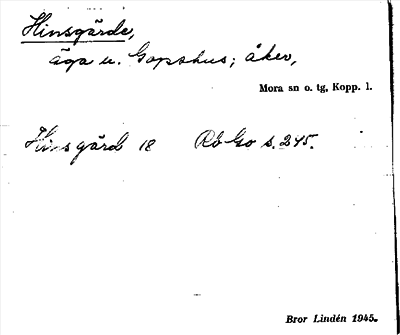 Hinsgärde,
äga u. Gopshus; åker,
Mora sn o. tg, Kopp. l.
Hinsgärd 18 Rb Go s. 245.
Bror Lindén 1945.